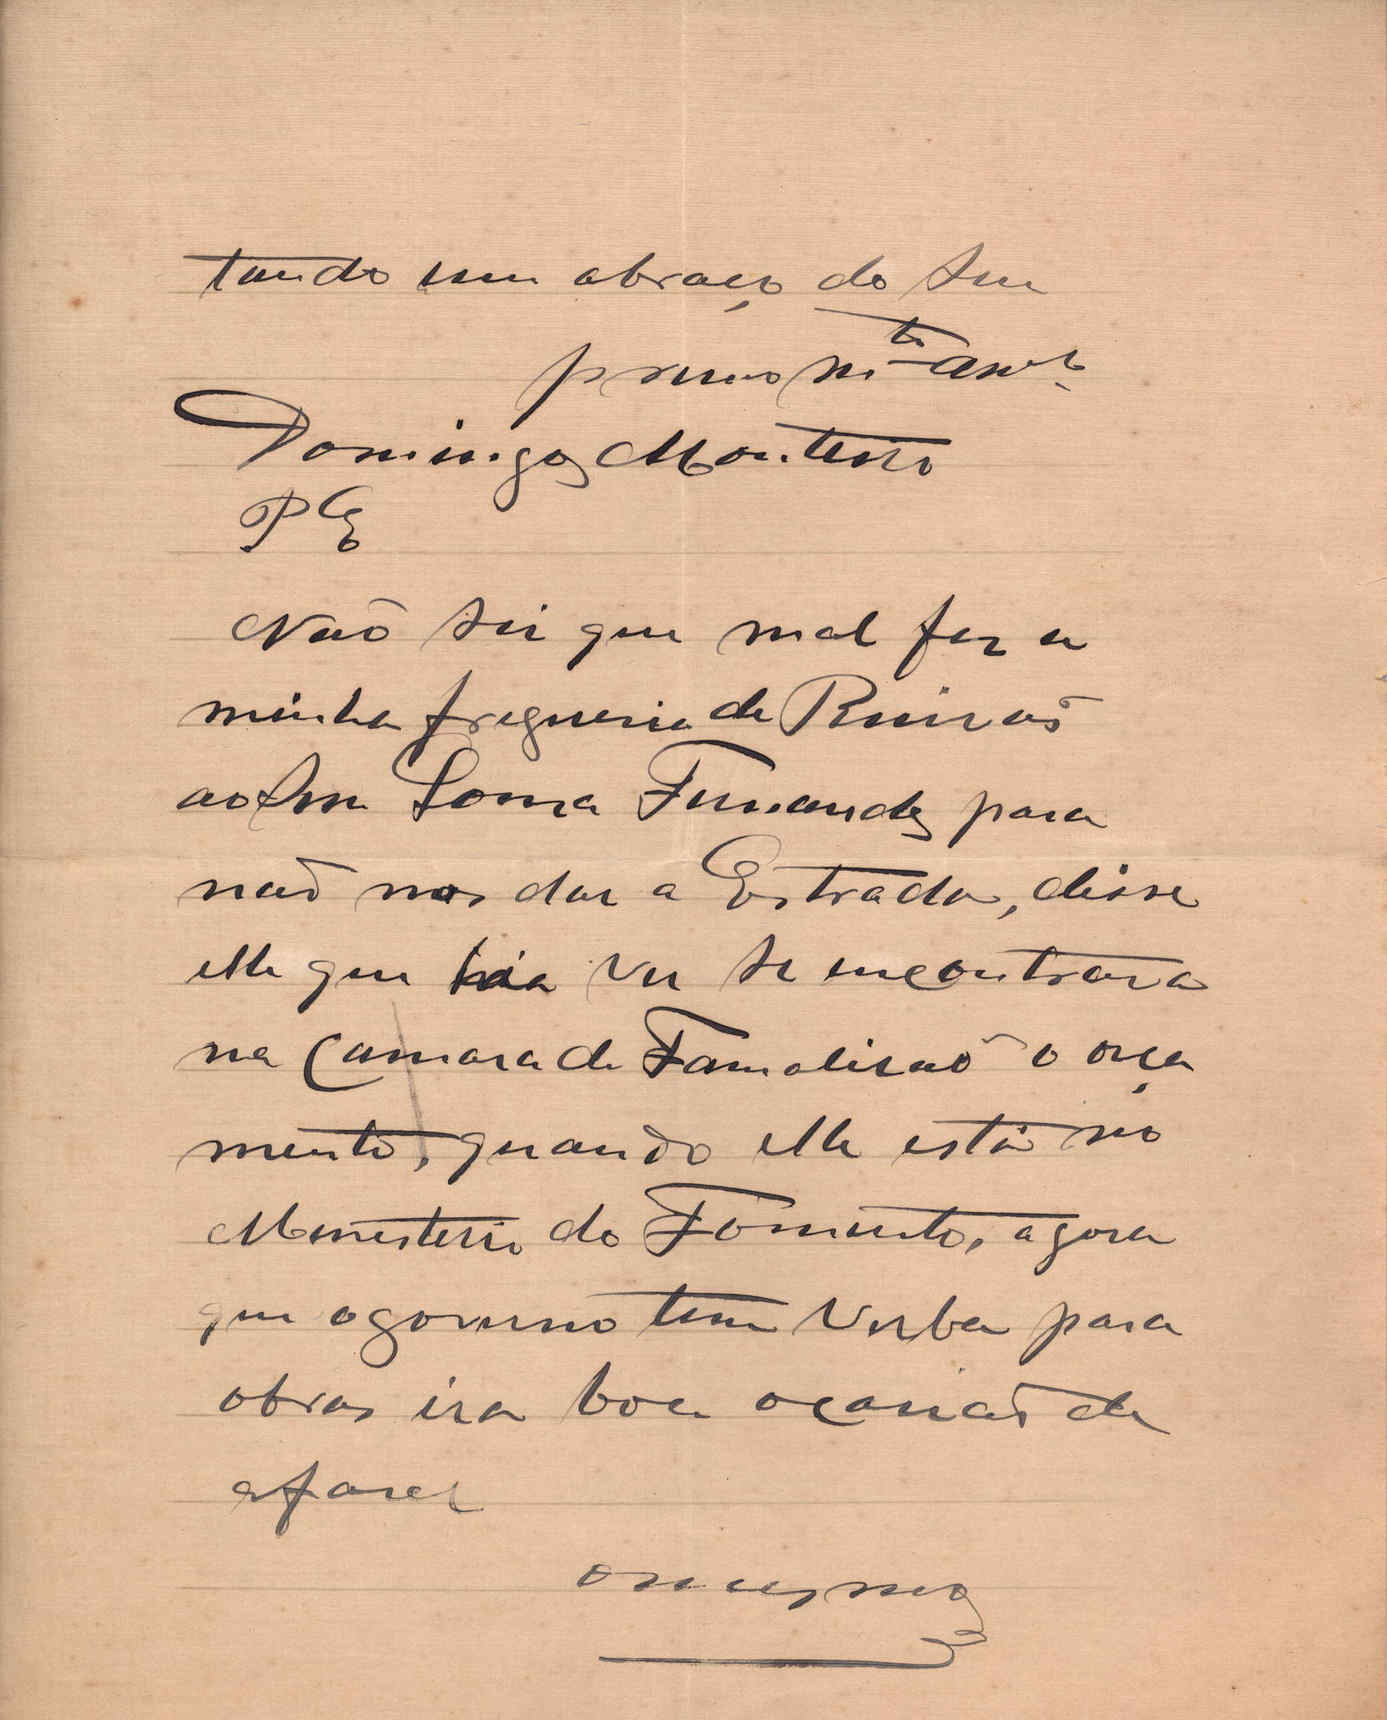 tando um abraço do seu
primo m.to am.o
Domingos Monteiro
P E
Não sei que mal fez a
minha freguesia de Ruivaẽs
ao Snr Sousa Fernandes para
naõ nos dar a Estrada, disse
elle que hia ver se encontrava
na Camara de Famalicaõ o orça
mento, quando elle está no
Menisterio do Fomento, agora
que o governo tem verba para
obras era boa ocasiaõ de
a fazer
o mesmo